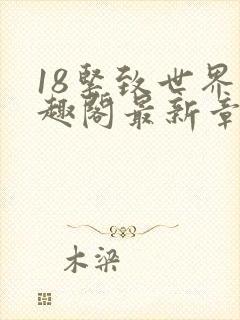 18坚致世界
趣阁最新章
木梁